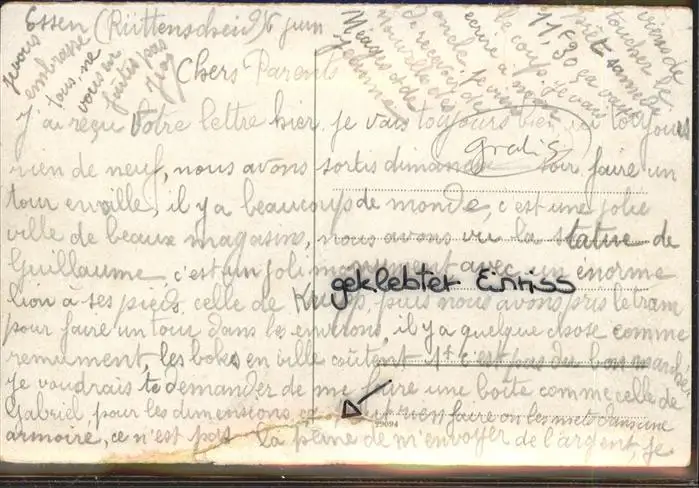 Essen (Rüttenscheid) 6 juin
Chers Parents
J'ai reçu votre lettre hier, je vais toujours bien, ici toujours
rien de neuf, nous avons sortis dimanche soir faire un
tour en ville, il y a beaucoup de monde, c'est une jolie
ville de beaux magasins, nous avons vu la statue de
Guillaume, c'est un joli monument avec un énorme
lion à ses pieds, celle de Krupp, puis nous avons pris le tram
pour faire un tour dans les environs, il y a quelque chose comme
remument, les boks en ville coûtent 1f c'est pas du bon marché,
je voudrais te demander de me faire une boîte comme celle de
Gabriel, pour les dimensions rien faire on les mets dans une
armoire, ce n'est pas la peine de m'envoyer de l'argent, je
viens de
toucher le
prêt samedi
11,30 ça va
le coup, je vais
écrire à mon
oncle, je viens
de recevoir de
nouvelles de
Jérôme
Je vous
embrasse
tous, ne
vous en
faites pas
gratis
geklebter Einriss
29094